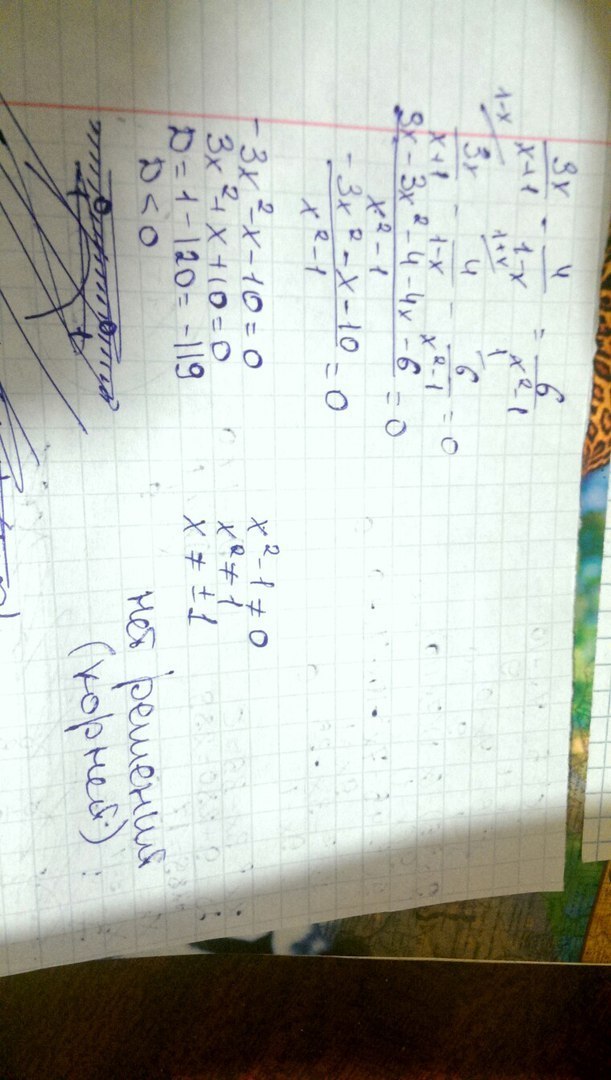 3x/x+1 - 4/1-x = 6/x²-1
3x/x+1 - 4/1-x - 6/x²-1 = 0
3x - 3x² - 4 - 4x - 6 / x²-1 = 0
-3x² - x - 10 / x²-1 = 0
-3x² - x - 10 = 0
3x² + x + 10 = 0
D = 1 - 120 = -119
D < 0
x² - 1 ≠ 0
x² ≠ 1
x ≠ ± 1
нет решений
(корней)